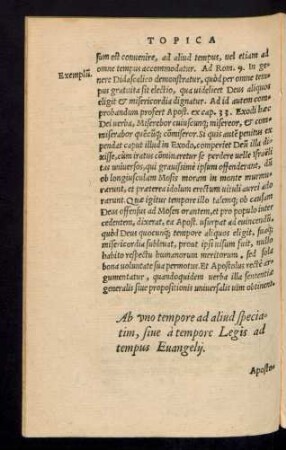 TOPICA
sum est convenire, ad aliud tempus, vel etiam ad
omne tempus accommodatur. Ad Rom. 9. In ge
Exemplũ.
nere Didascalico demonstratur, quòd per omne tem
pus gratuita sit electio, qua videlicet Deus aliquos
eligit & misericordia dignatur. Ad id autem com
probandum profert Apost. ex cap. 33. Exodi hæc
Dei verba, Miserebor cuiuscunq; misereor, & com
miserabor quẽcũq; cõmiseror. Si quis autẽ penitus ex
pendat caput illud in Exodo, comperiet Deũ illa di
xisse, cùm iratus cominaretur se perdere velle Israëli
tas universos, qui gravissimè ipsum offenderant, dũ
ob longiusculam Mosis moram in monte murmu
rarunt, et præterea idolum erectum vituli aurei ado
rarunt. Qua igitur tempore illo talemq; ob causam
Deus offensus ad Mosen orantem, et pro populo inter
cedentem, dixerat, ea Apost. usurpat ad evincendũ,
quòd Deus quocunq; tempore aliquos eligit, suaq;
misericordia sublevat, prout ipsi visum fuit, nullo
habito respectu humanorum meritorum, sed sola
bona voluntate sua permotus. Et Apostolus rectè ar
gumentatur, quandoquidem verba illa sententiæ
generalis sive propositionis universalis vim obtinent.
Ab vno tempore ad aliud specia-
tim, siue à tempore Legis ad
tempus Euangelij.
Aposto-